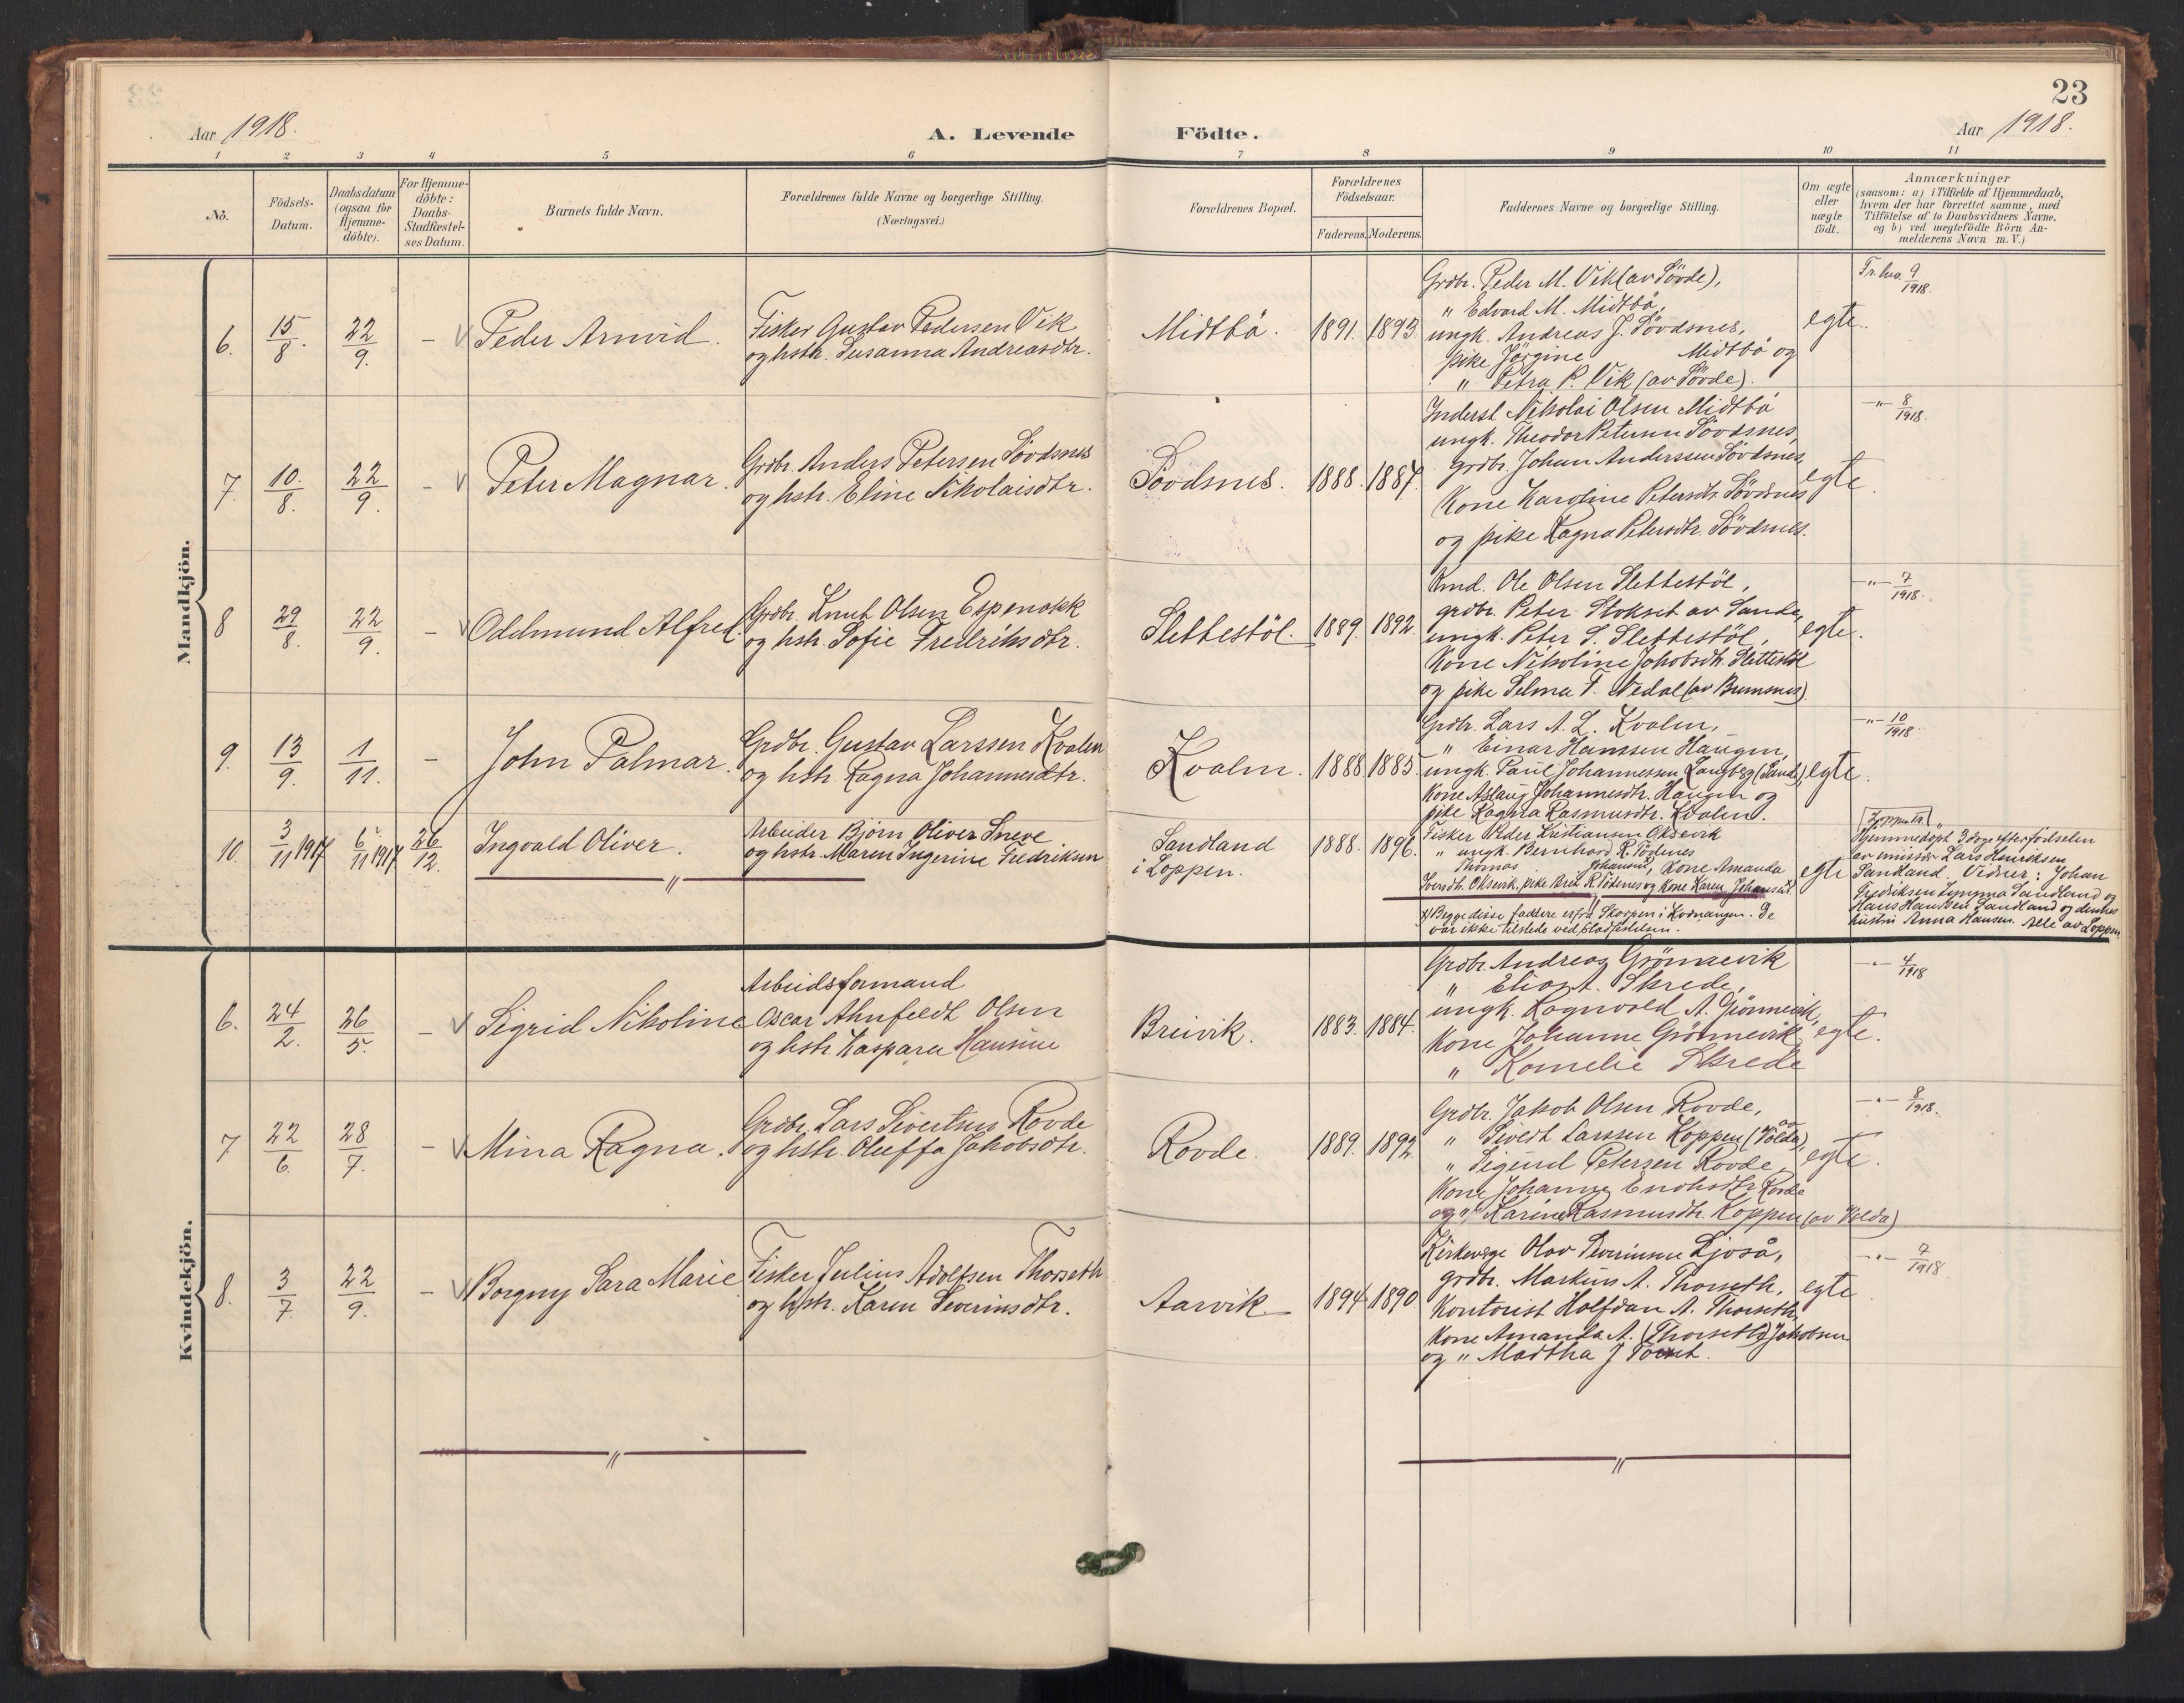 23
Aar 1918.
A. Levende
Födte.
Aar 1918.
1 2 3 4 5 6 7 8 9 10 11
No.
Födsels-
Datum.
Daabsdatum
(ogsaa for
Hjemme-
döbte).
For Hjemme-
döbte:
Daabs-
Stadfæstel-
ses Datum.
Barnets fulde Navn.
Forældrenes fulde Navne og borgerlige Stilling.
(Næringsvei.)
Forældrenes Bopæl.
Forældrenes
Födselsaar.
Faderens. Moderens.
Faddernes Navne og borgerlige Stilling.
Om ægte
eller
uægte
födt.
Anmærkninger
(saasom: a) i Tilfælde af Hjemmedaab,
hvem der har forrettet samme, med
Tilföielse af to Daabsvidners Navne,
og b) ved uægtefödte Börn An-
melderens Navn m. V.)
Mandkjön.
6. 15/8. 22/9. – Peder Arnvid.
Fisker Gustav Pedersen Vik
og hstr. Susanna Andreasdtr.
Midtbö. 1891. 1893.
Grdbr. Peder M. Vik (av Sövde),
" Edvard M. Midtbö,
ungk. Andreas J. Sövdsnes,
pike Jörgine Midtbö og
" Petra P. Vik (av Sövde).
egte.
9/1918.
7. 10/8. 22/9. – Peter Magnar.
Grdbr. Anders Petersen Sövdsnes
og hstr. Eline Nikolaisdtr.
Sövdsnes. 1888. 1887.
Inderst Nikolai Olsen Midtbö
ungk. Theodor Petersen Sövdsnes,
grdbr. Johan Anderssen Sövdsnes,
Kone Karoline Petersdtr. Sövdsnes
og pike Ragna Petersdtr. Sövdsnes.
egte.
–"– 8/1918.
8 29/8. 22/9. – Odelmund Alfred.
Grdbr. Knut Olsen Espenakk
og hstr. Sofie Fredriksdtr.
Slettestöl. 1889. 1892.
Kmd. Ole Olsen Slettestöl,
grdbr. Peter Stokset av Sande,
ungk. Peter S. Slettestöl,
Kone Nikoline Jakobsdtr. Slettestöl
og pike Selma F. Nedal
egte.
–"– 7/1918.
9. 13/9. 1/11. – John Palmar.
Grdbr. Gustav Larssen Kvalen
og hstr. Ragna Johannesdtr.
Kvalen. 1888. 1885.
Grdbr. Lars A. L. Kvalen,
" Einar Hanssen Haugen,
ungk. Paul Johannessen Langberg (Sande),
Kone Aslaug Johannesdtr. Haugen og
pike Ragna Rasmusdtr. Kvalen.
egte.
–"– 10/1918.
10. 3/11 1917 6/11 1917. 26/12. Ingvald Oliver.
Arbeider Björn Oliver Sneve
og hstr. Maren Ingerine Fredriksen
Sandland
i Loppen.
1888. 1896.
Fisker Peder Kristiansen Oksevik
" ungk. Bernhard R. Södenes
Thomas Johansen, Kone Amanda
Oksevik, pike Berit R. Södenes og Kone Karen Johansen x)
x) Begge disse faddere er fra Skorpen i Kvænangen. De
var ikke tilstede ved stadfestelsen.
egte
Hjemmedöpt 3 dage efter födselen
av Lars Henriksen
Sandland. Vidner: Johan
Fredriksen Sandland og
Hans Hansen Sandland og dennes
hustru Anna Hansen. Alle av Loppen
Kvindekjön.
6. 24/2. 26/5. – Sigrid Nikoline
Arbeidsformand
Oscar Ahnfeldt Olsen
og hstr. Kaspara Hansine
Breivik. 1883. 1884.
Grdbr. Andreas Grönnevik
" Elias A. Skrede,
ungk. Ragnvald A. Grönnevik,
Kone Johanne Grönnevik,
" Kornelie Skrede
egte.
–"– 4/1918
7 22/6. 28/7. – Mina Ragna.
Grdbr. Lars Sivertsen Rovde
og hstr. Oluffa Jakobsdtr.
Rovde. 1889. 1892.
Grdbr. Jakob Olsen Rovde,
" Sivert Larssen Koppen (av Volda),
" Sigurd Petersen Rovde,
Kone Johanne Enoksdtr. Rovde
og " Karine Rasmusdtr. Koppen (av Volda)
egte.
–"– 8/1918.
8. 3/7. 22/9. – Borgny Sara Marie
Fisker Julius Adolfsen Thorseth
og hstr. Karen Severinsdtr.
Aarvik. 1894 1890
Kirkeverge Olav Severinsen Ljoså,
grdbr. Markus A. Thorseth,
Kontorist Halfdan A. Thorseth,
Kone Amanda A. (Thorseth) Jakobsen
og " Martha J
egte
–"– 7/1918